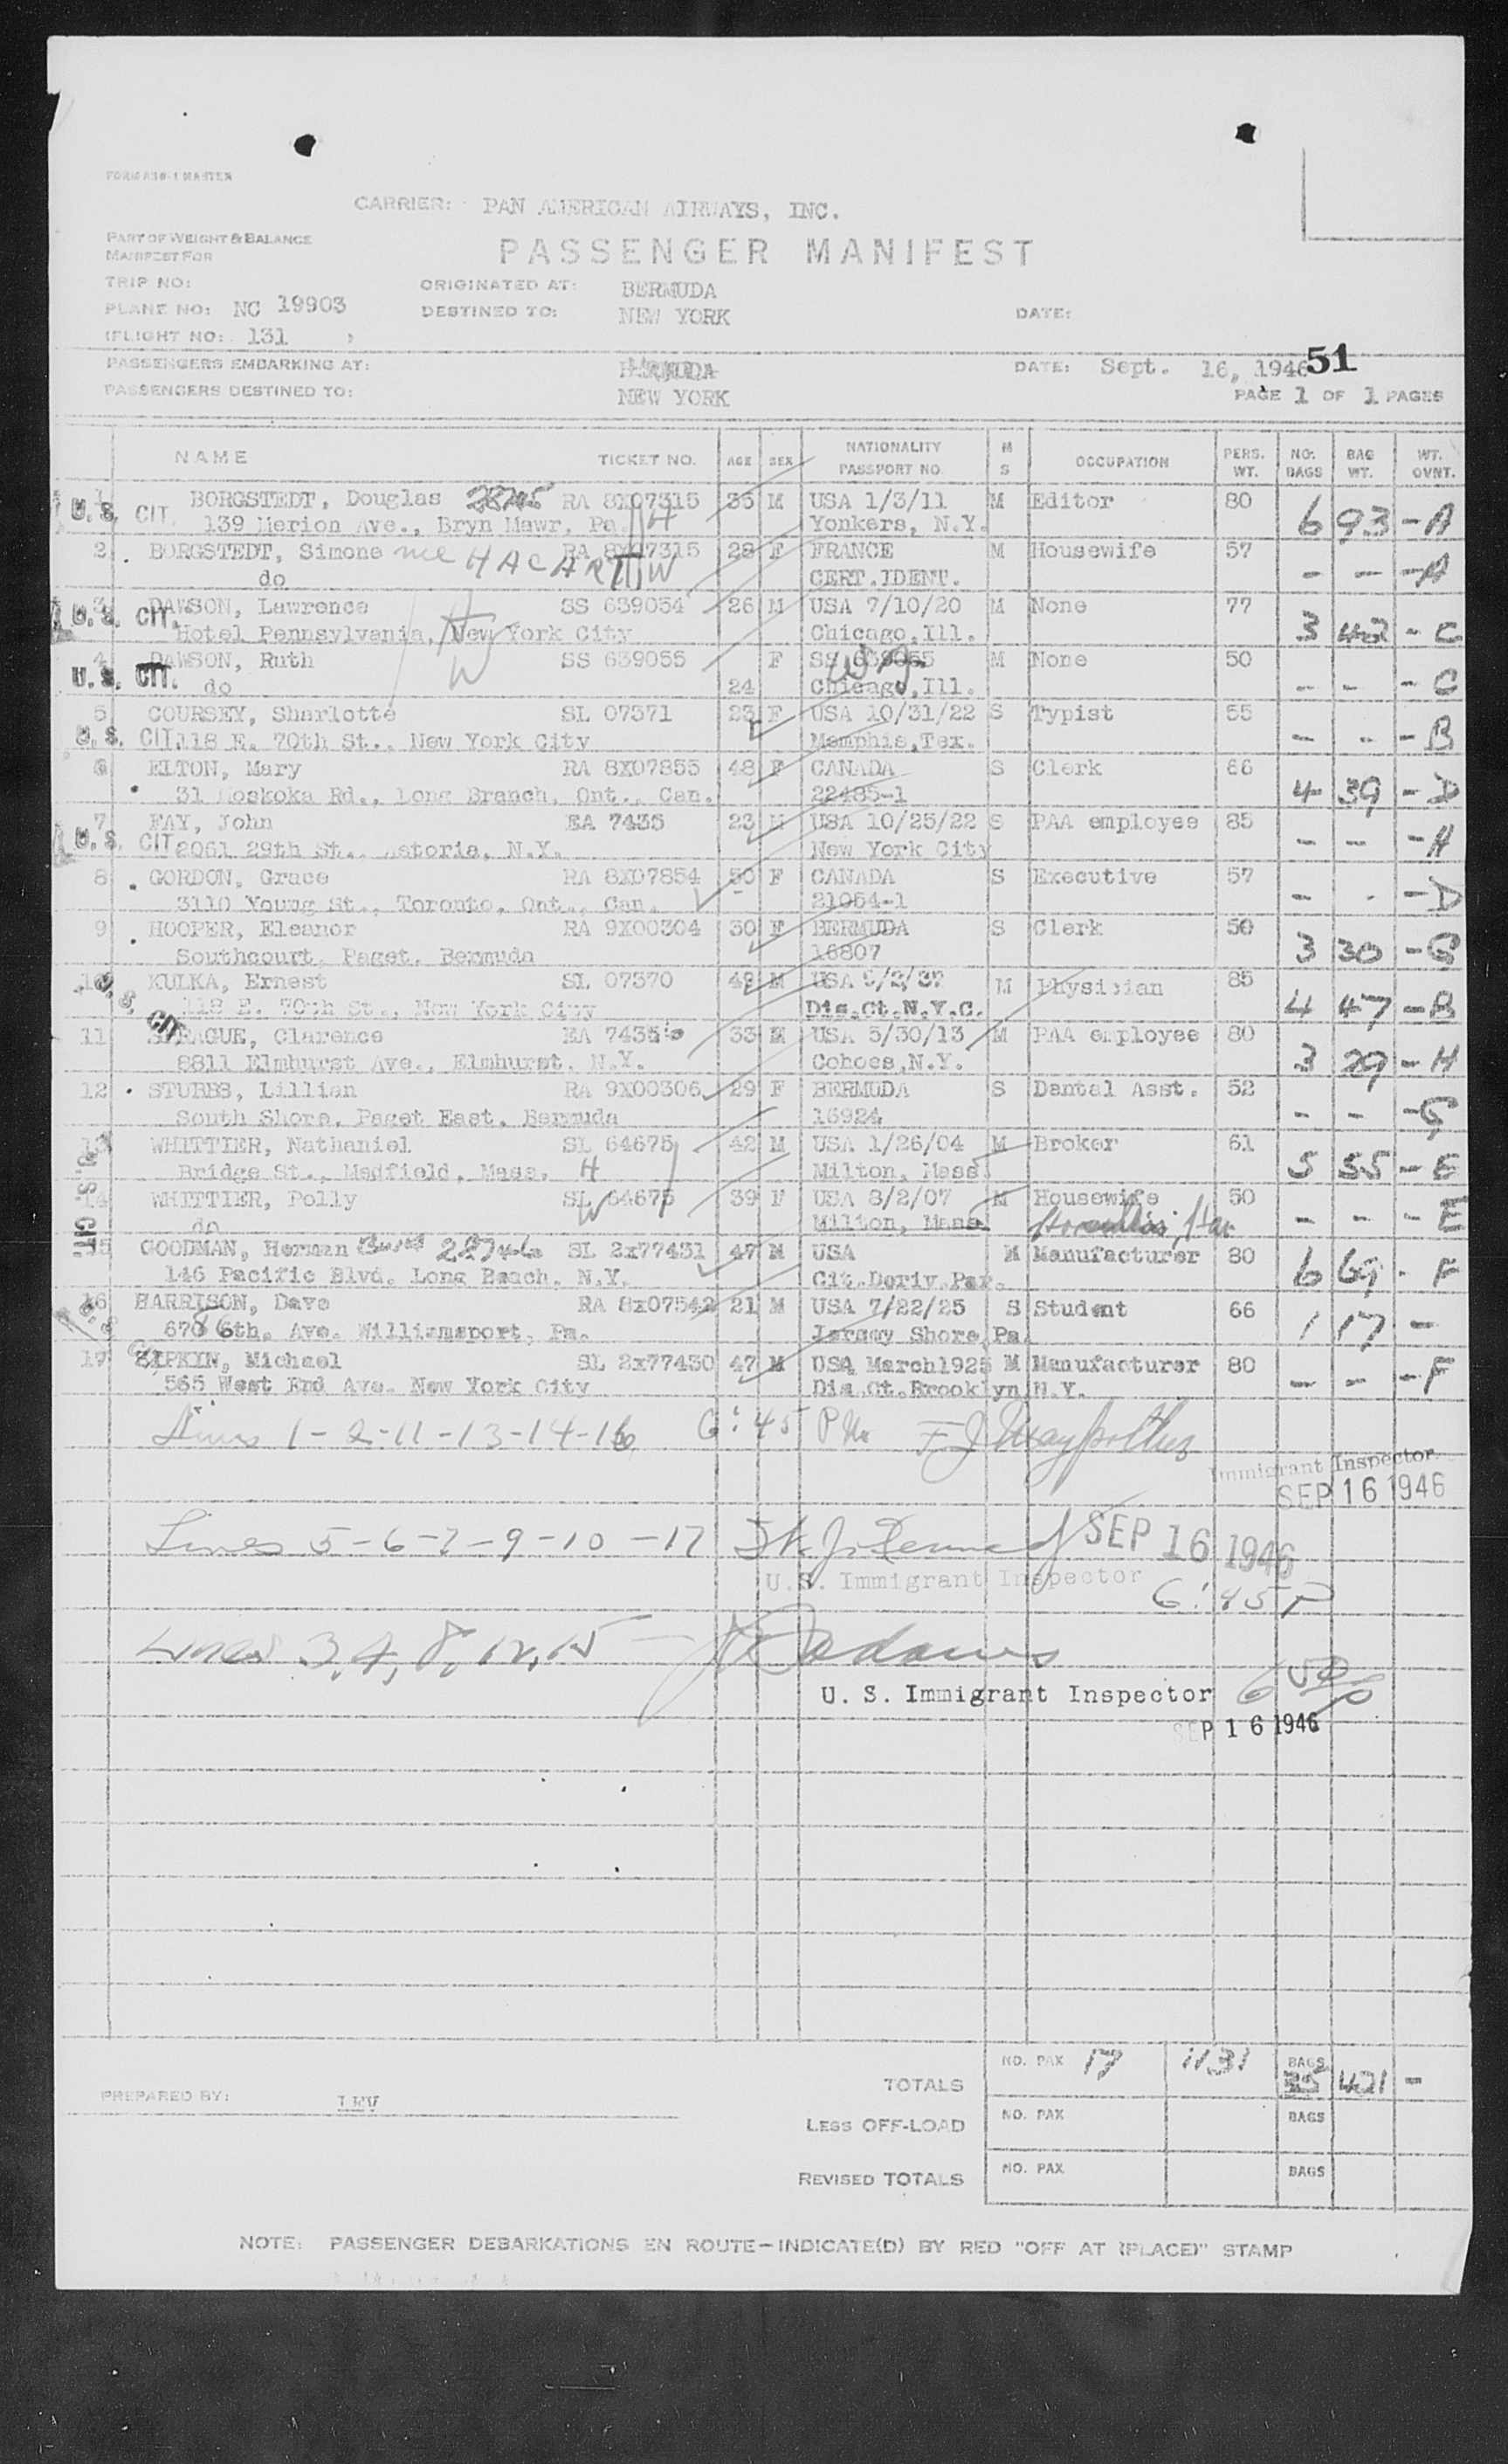 FORM A10-1 MASTER
CARRIER: PAN AMERICAN AIRWAYS, INC.
PART OF WEIGHT & BALANCE
MANIFEST FOR
PASSENGER MANIFEST
TRIP NO: ORIGINATED AT: BERMUDA
PLANE NO: NC 19903 DESTINED TO: NEW YORK DATE:
(FLIGHT NO: 131 )
PASSENGERS EMBARKING AT: BERMUDA DATE: Sept. 16, 1946 51
PASSENGERS DESTINED TO: NEW YORK PAGE 1 OF 1 PAGES
NAME TICKET NO. AGE SEX NATIONALITY PASSPORT NO M S OCCUPATION PERS. WT. NO. BAGS BAG WT. WT. OVNT.
1 BORGSTEDT, Douglas RA 8X07315 35 M USA 1/3/11 M Editor 80
U. S. CIT. 139 Merion Ave., Bryn Mawr, Pa. H Yonkers, N.Y. 6 93 - A
2 BORGSTEDT, Simone nee HACART W RA 8X07315 28 F FRANCE M Housewife 57
do CERT.IDENT. - - - A
3 DAWSON, Lawrence SS 639054 26 M USA 7/10/20 M None 77
U. S. CIT. Hotel Pennsylvania, New York City H Chicago,Ill. 3 42 - C
4 DAWSON, Ruth W SS 639055 F SS 639055 M None 50
U. S. CIT. do 24 Chicago,Ill. - - - C
5 COURSEY, Sharlotte SL 07371 23 F USA 10/31/22 S Typist 55
U. S. CIT. 118 E. 70th St., New York City Memphis,Tex. - - - B
6 ELTON, Mary RA 8X07855 48 F CANADA S Clerk 66
31 Moskoka Rd., Long Branch, Ont., Can. 22485-1 4 39 - D
7 FAY, John EA 7435 23 M USA 10/25/22 S PAA employee 85
U. S. CIT 2061 29th St., Astoria, N.Y. New York City - - - H
8 GORDON, Grace RA 8X07854 50 F CANADA S Executive 57
3110 Young St., Toronto, Ont., Can. 21054-1 - - - D
9 HOOPER, Eleanor RA 9X00304 30 F BERMUDA S Clerk 50
Southcourt, Paget, Bermuda 16807 3 30 - G
10 KULKA, Ernest SL 07370 49 M USA M Physician 85
U. S. CIT 118 E. 70th St., New York City Dis.Ct.N.Y.C. 4 47 - B
11 SPRAGUE, Clarence EA 7435 33 M USA 5/30/13 M PAA employee 80
8811 Elmhurst Ave., Elmhurst, N.Y. Cohoes,N.Y. 3 29 - H
12 STUBBS, Lillian RA 9X00306 29 F BERMUDA S Dental Asst. 52
South Shore, Paget East, Bermuda 16924 - - - G
13 WHITTIER, Nathaniel SL 64675 42 M USA 1/26/04 M Broker 61
Bridge St., Medfield, Mass. H Milton, Mass. 5 55 - E
14 WHITTIER, Polly SL 64675 39 F USA 8/2/07 M Housewife 50
U. S. CIT. do W Milton, Mass. - - - E
15 GOODMAN, Herman SL 2x77431 47 M USA M Manufacturer 80
146 Pacific Blvd. Long Beach, N.Y. Cit.Deriv.Par. 6 69 - F
16 HARRISON, Dave RA 8x07542 21 M USA 7/22/25 S Student 66
6th. Ave. Williamsport, Pa. Jersey Shore, Pa. 1 17 -
17 ZIPKIN, Michael SL 2x77430 47 M USA March1925 M Manufacturer 80
565 West End Ave. New York City Dis.Ct.Brooklyn,N.Y. - - - F
Lines 1-2-11-13-14-16 6:45 PM
Immigrant Inspector
SEP 16 1946
Lines 5-6-7-9-10-17 SEP 16 1946
U.S. Immigrant Inspector 6:45 P
Lines 3, 4, 8, 12, 15 - Adams
U. S. Immigrant Inspector
SEP 16 1946
TOTALS NO. PAX 17 1131 BAGS 35 421 -
PREPARED BY:
LESS OFF-LOAD NO. PAX BAGS
REVISED TOTALS NO. PAX BAGS
NOTE: PASSENGER DEBARKATIONS EN ROUTE—INDICATE(D) BY RED "OFF AT (PLACE)" STAMP